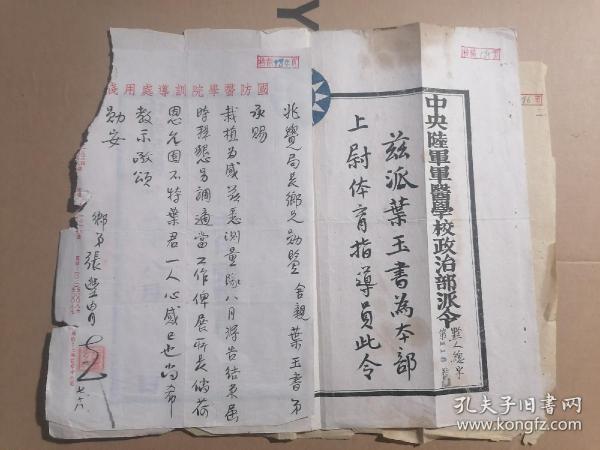 中央陸軍軍醫學校政治部派令
茲派葉玉書為本部
上尉体育指導員此令
國防醫學院訓導處用箋
兆覺局長鄉兄勛鑒 舍親葉玉書弟
承賜
栽植为感茲悉測量隊八月將告結束屆
時務懇另調適當工作俾展所長倘荷
恩允固不特葉君一人心感已也尚希
教示敬頌
勛安
鄉弟張豐胄
七、六
孔夫子旧书网
www.kongfz.com